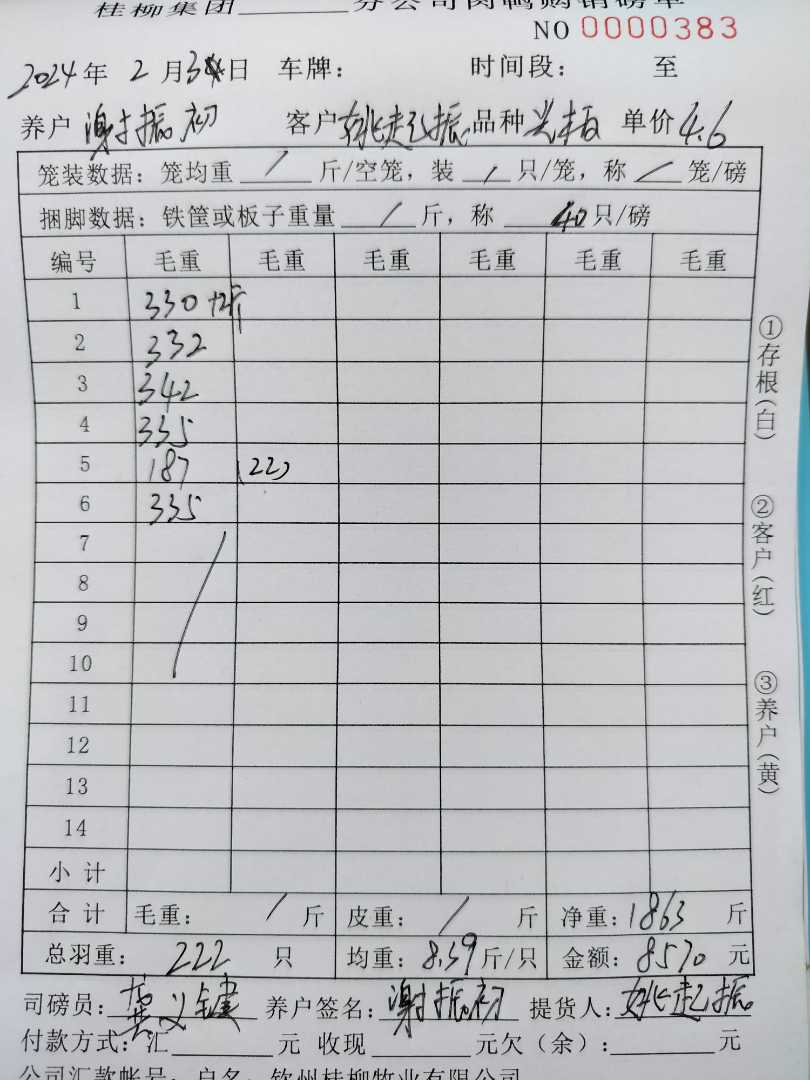 桂柳集团______分公司肉鸭购销磅单
NO 0000383
2024年 2 月 3 日 车牌： 时间段： 至
养户 谢振初 客户 姚起振 品种 单价 4.6
笼装数据：笼均重 / 斤/空笼，装 / 只/笼，称 / 笼/磅
捆脚数据：铁筐或板子重量 / 斤，称 40 只/磅
编号 毛重 毛重 毛重 毛重 毛重 毛重
1 330 斤
2 332
3 342
4 335
5 187 (22)
6 335
7
8
9
10
11
12
13
14
小计
合计 毛重： / 斤 皮重： / 斤 净重：1863 斤
总羽重： 222 只 均重：8.39 斤/只 金额：8570 元
司磅员：龚义键 养户签名：谢振初 提货人：姚起振
付款方式：汇______元 收现______元欠（余）：______元
公司汇款帐号：户名：钦州桂柳牧业有限公司
①存根(白)
②客户(红)
③养户(黄)